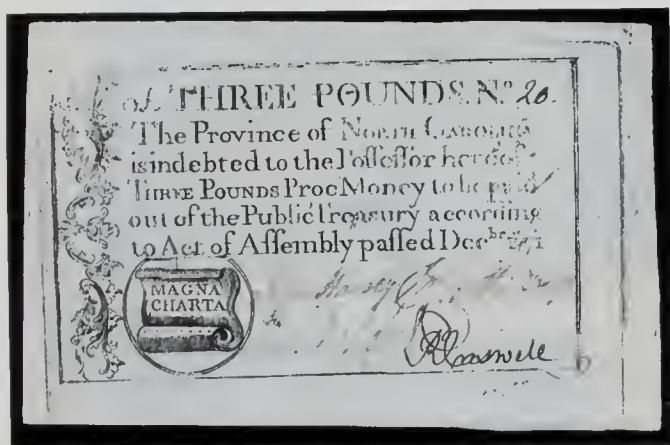 THREE POUNDS. No 20.
The Province of NORTH CAROLINA
is indebted to the Poſſeſſor hereof
THREE POUNDS Proc Money to be paid
out of the Public Treaſury according
to Act of Aſſembly paſſed Decbr
MAGNA
CHARTA
RCaswell